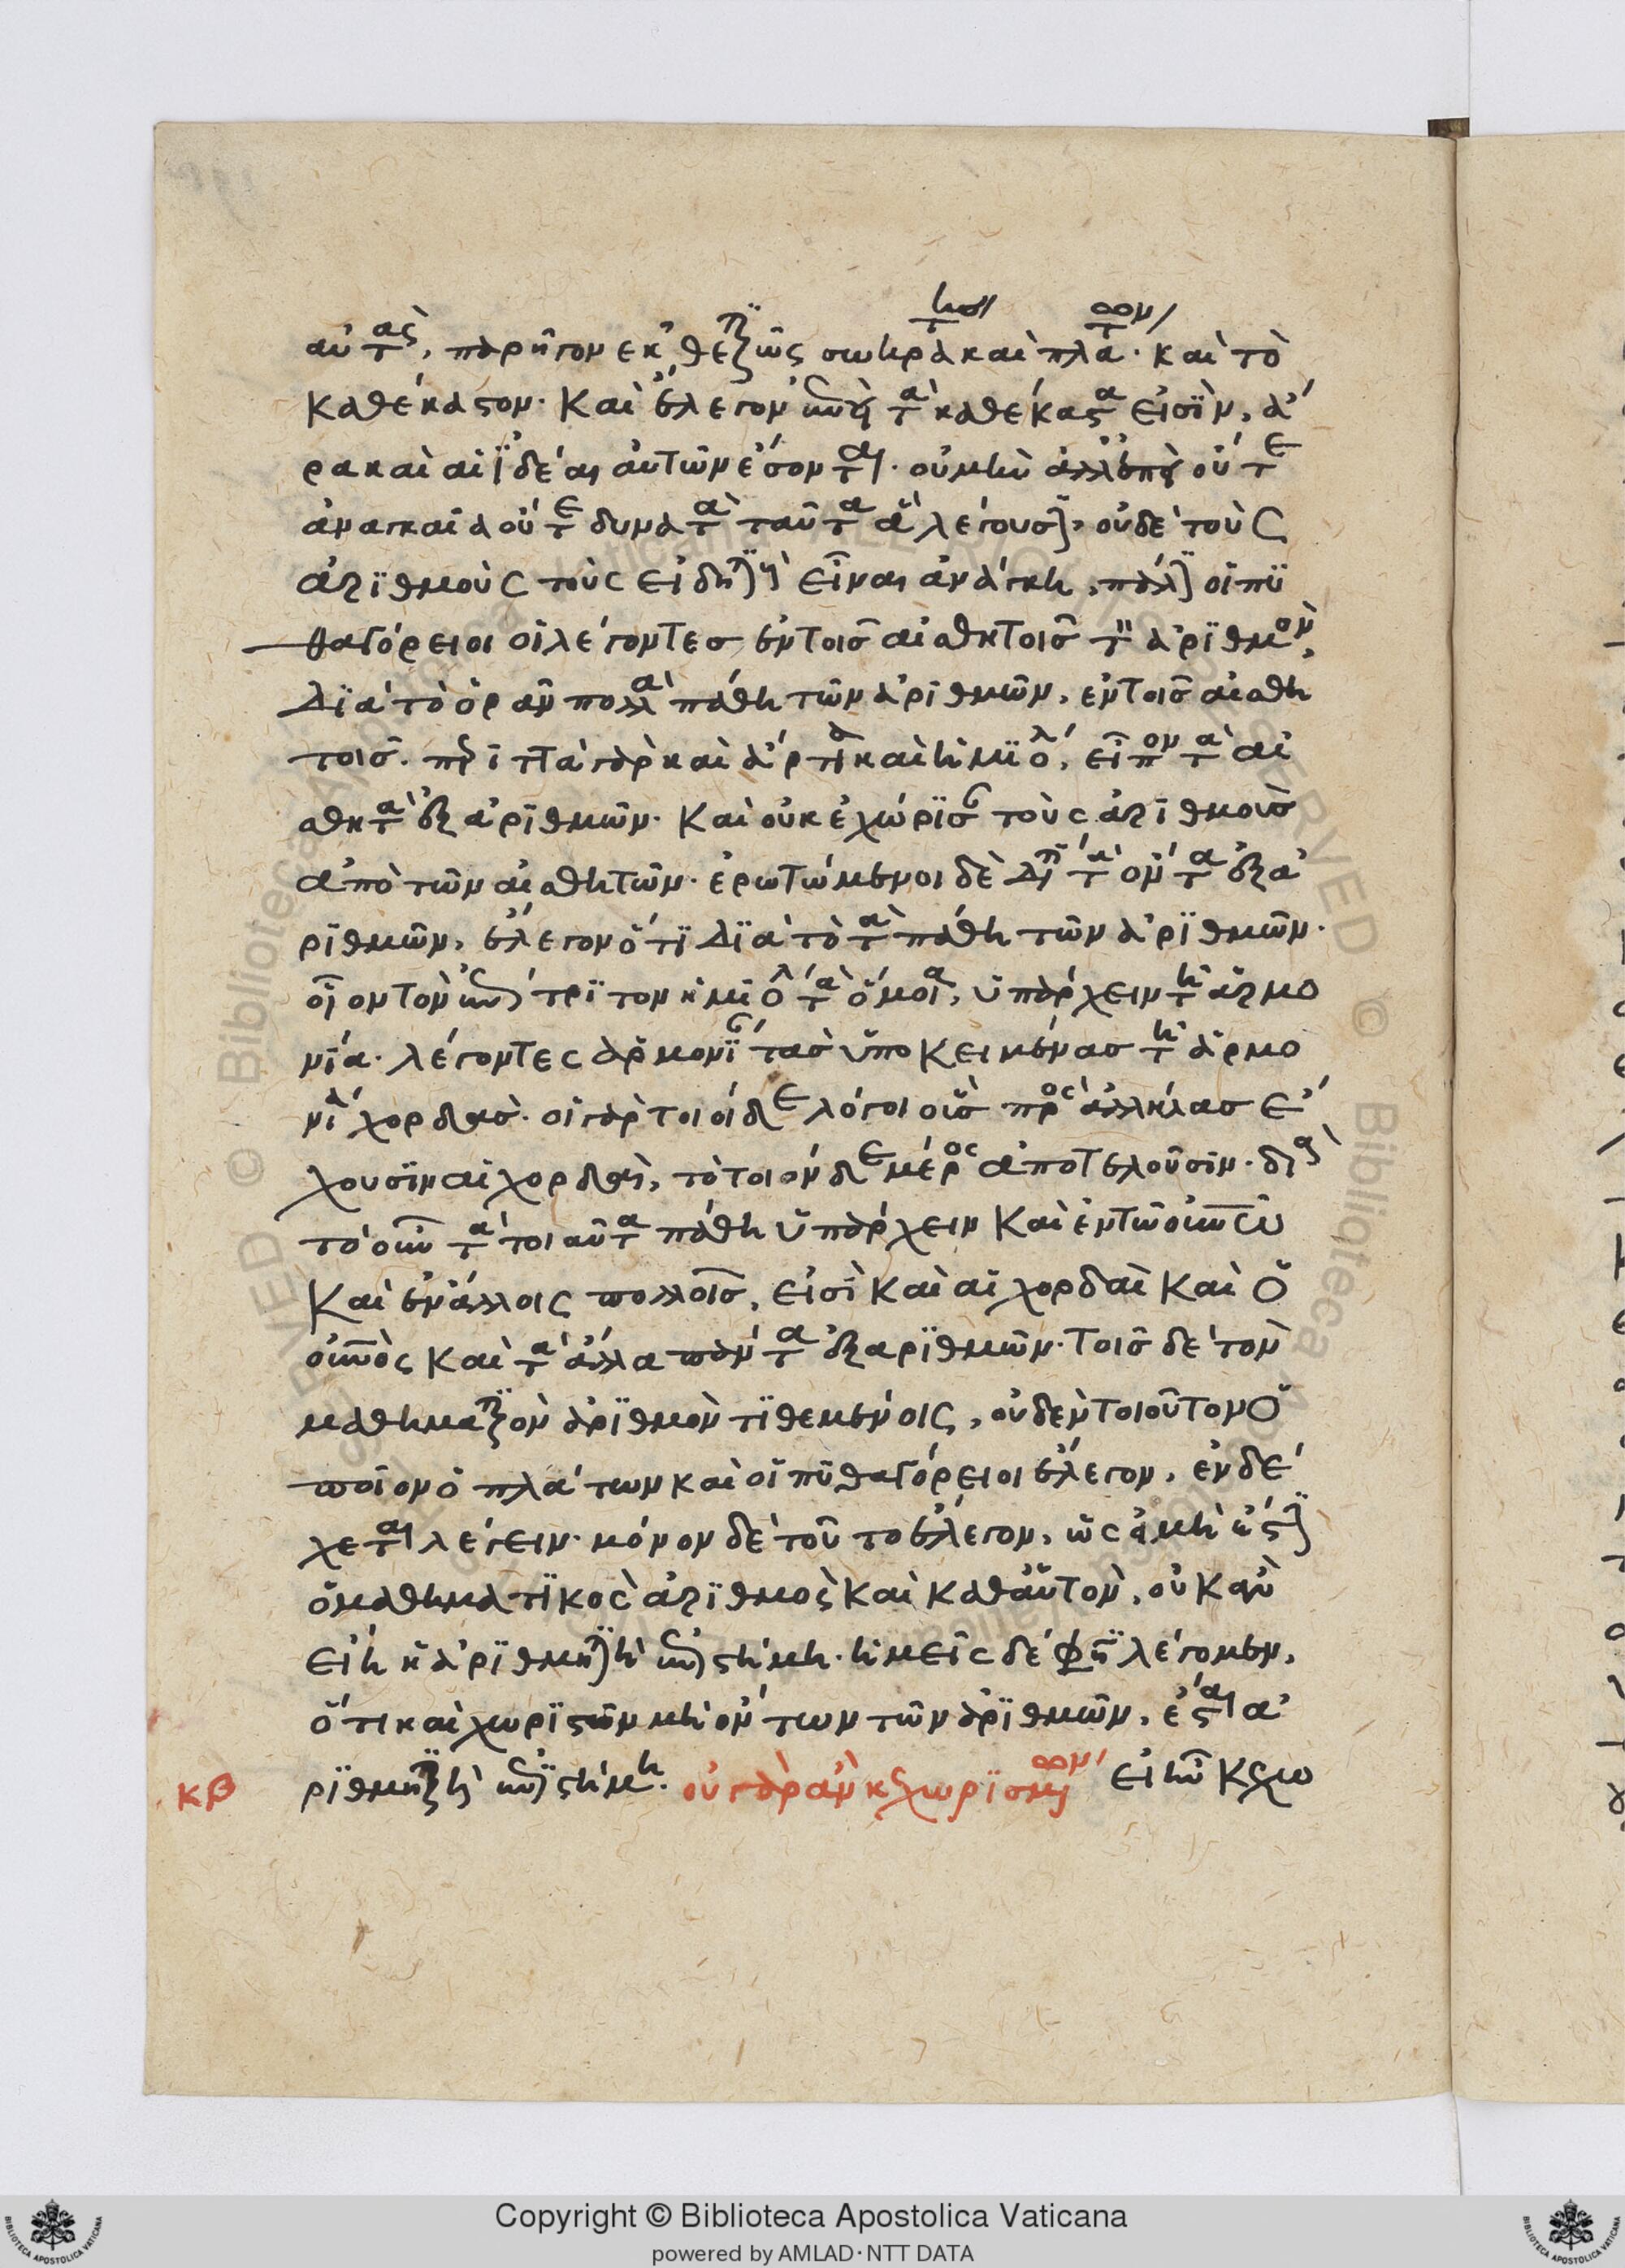 αὐτὰς, παρῆγον ἐκθετικῶς σωκράτη καὶ πλάτων. καὶ τὸ
καθέκαστον. καὶ ἔλεγον ἐπεὶ τὰ καθέκαστα εἰσὶν, ἄ
ρα καὶ αἱ ἰδέαι αὐτῶν ἔσονται. οὐ μὴν ἀλλ' οὔτε
ἀναγκαῖα οὔτε δυνατὰ ταῦτα ἃ λέγουσι. οὐδὲ τοὺς
ἀριθμοὺς τοὺς εἰδητικοὺς εἶναι ἀνάγκη, πάλιν οἱ πυ
θαγόρειοι οἱ λέγοντες ἐν τοῖς αἰσθητοῖς τὸν ἀριθμὸν,
διὰ τὸ ὁρᾶν πολλὰ πάθη τῶν ἀριθμῶν, ἐν τοῖς αἰσθη
τοῖς. περιττὰ γὰρ καὶ ἄρτια καὶ ἡμιόλια, εἶπον τὰ αἰ
σθητὰ ἐξ ἀριθμῶν. καὶ οὐκ ἐχώρισαν τοὺς ἀριθμοὺς
ἀπὸ τῶν αἰσθητῶν. ἐρωτώμενοι δὲ διατί τὰ ὄντα ἐξ ἀ
ριθμῶν, ἔλεγον ὅτι διὰ τὸ τὰ πάθη τῶν ἀριθμῶν.
οἷον τὸν ἐπίτριτον ἡμιόλια τὰ ὅμοια, ὑπάρχειν τῇ ἁρμο
νία. λέγοντες ἁρμονίας τὰς ὑποκειμένας τῇ ἁρμο
νίᾳ χορδάς. οἱ γὰρ τοιοίδε λόγοι οὓς πρὸς ἀλλήλας ἔ
χουσιν αἱ χορδαὶ, τὸ τοιόνδε μέρος ἀποτελοῦσιν. διὰ
τὸ οὖν τὰ τοιαῦτα πάθη ὑπάρχειν καὶ ἐν τῷ οὐρανῷ
καὶ ἐν ἄλλοις πολλοῖς, εἰσὶ καὶ αἱ χορδαὶ καὶ ὁ
οὐρανὸς καὶ τὰ ἄλλα πάντα ἐξ ἀριθμῶν. τοῖς δὲ τὸν
μαθηματικὸν ἀριθμὸν τιθεμένοις, οὐδὲν τοιοῦτον ὁ
ποῖον ὁ πλάτων καὶ οἱ πυθαγόρειοι ἔλεγον, ἐνδέ
χεται λέγειν. μόνον δὲ τοῦτο ἔλεγον, ὡς εἰ μὴ ἔστιν
ὁ μαθηματικὸς ἀριθμὸς καὶ καθαὑτὸν, οὐκ ἂν
εἴη ἡ ἀριθμητικὴ ἐπιστήμη. ἡμεῖς δέ φησι λέγομεν,
ὅτι καὶ χωριστῶν μὴ ὄντων τῶν ἀριθμῶν, ἔσται ἀ
κβ ριθμητικὴ ἐπιστήμη. οὐ γὰρ ἂν κεχωρισμένων εἰ ἦν κεχω